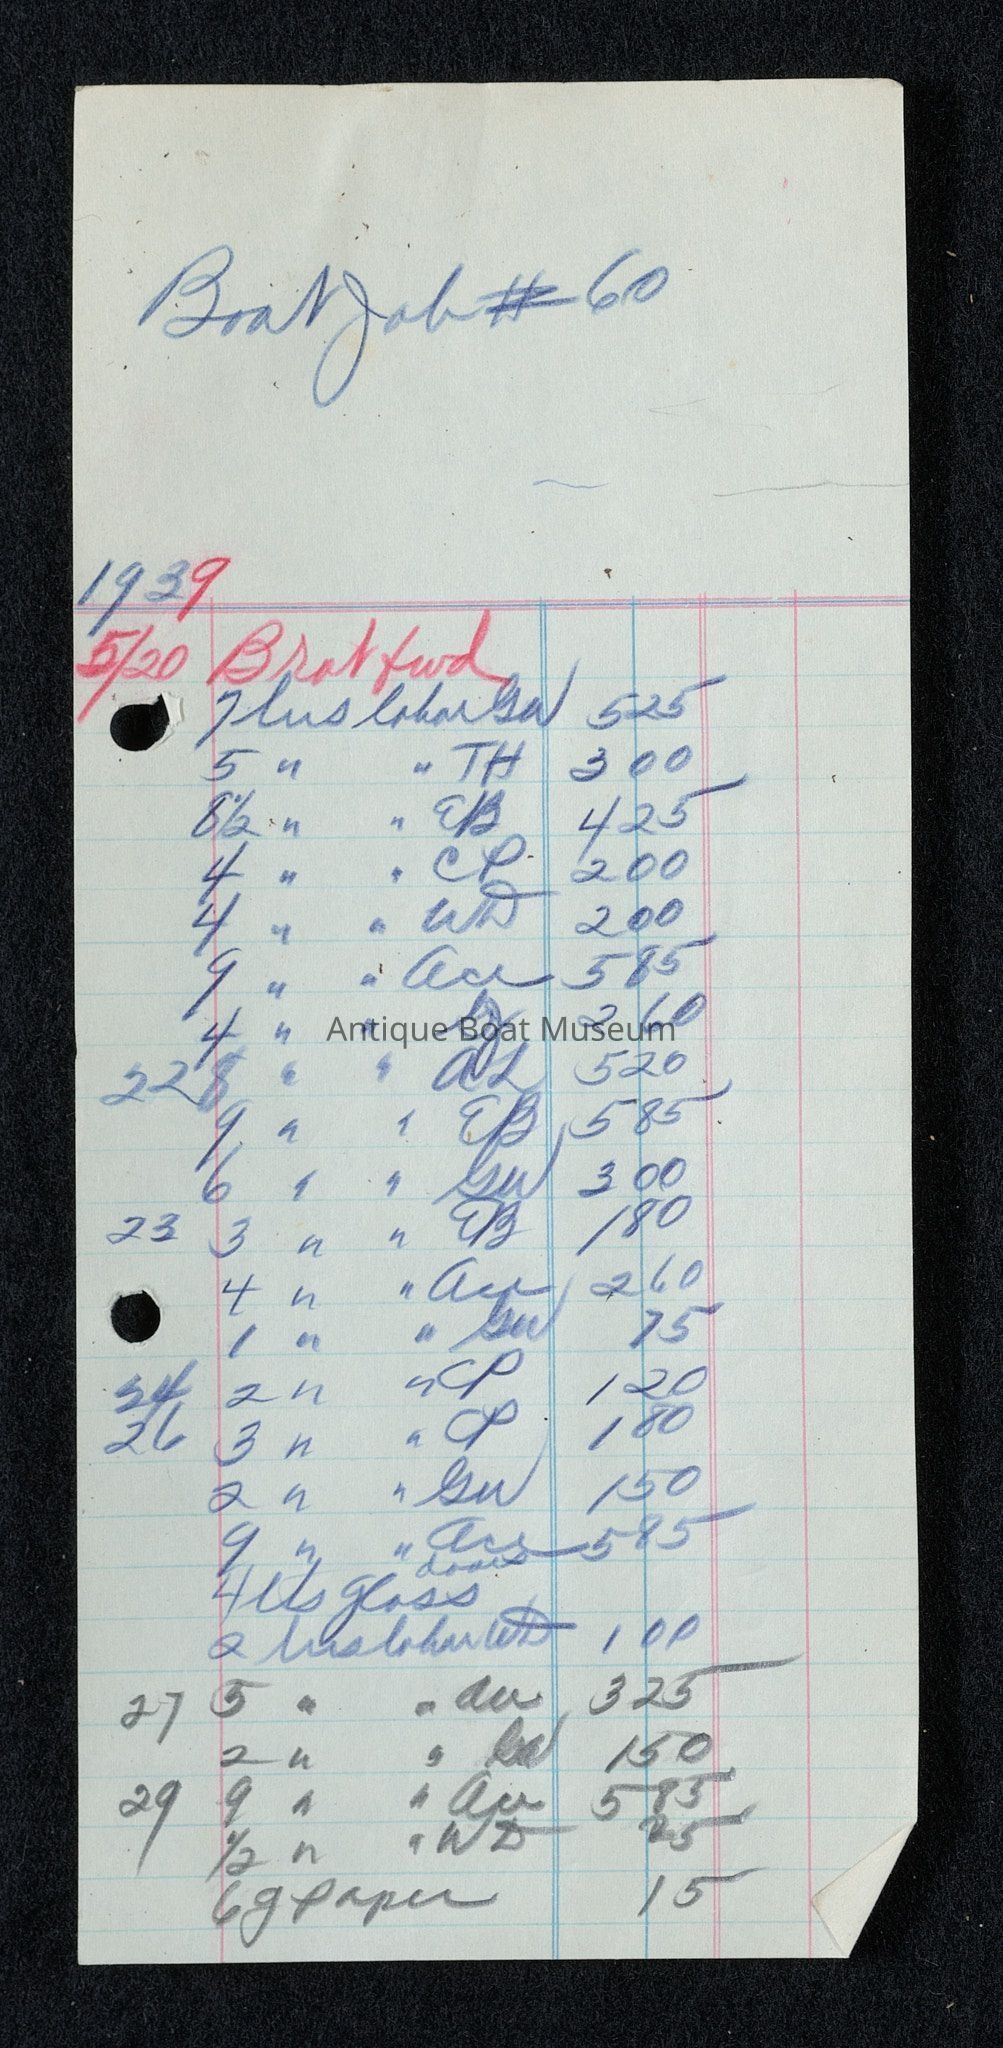 Boat Job # 60
1939
5/20 Brot fwd
7 hrs labor GW 525
5 " " TH 300
8½ " " EB 425
4 " " CP 200
4 " " WD 200
9 " " Ace 585
4 " " 260
Antique Boat Museum
22 8 " " AL 520
9 " " EB 585
6 " " GW 300
23 3 " " EB 180
4 " " Ace 260
1 " " GW 75
24 2 " " CP 120
26 3 " " CP 180
2 " " GW 150
9 " " Ace 585
4 lts glass doors
2 hrs labor WD 100
27 5 " " Ace 325
2 " " GW 150
29 9 " " Ace 585
½ " " WD 25
6 g paper 15